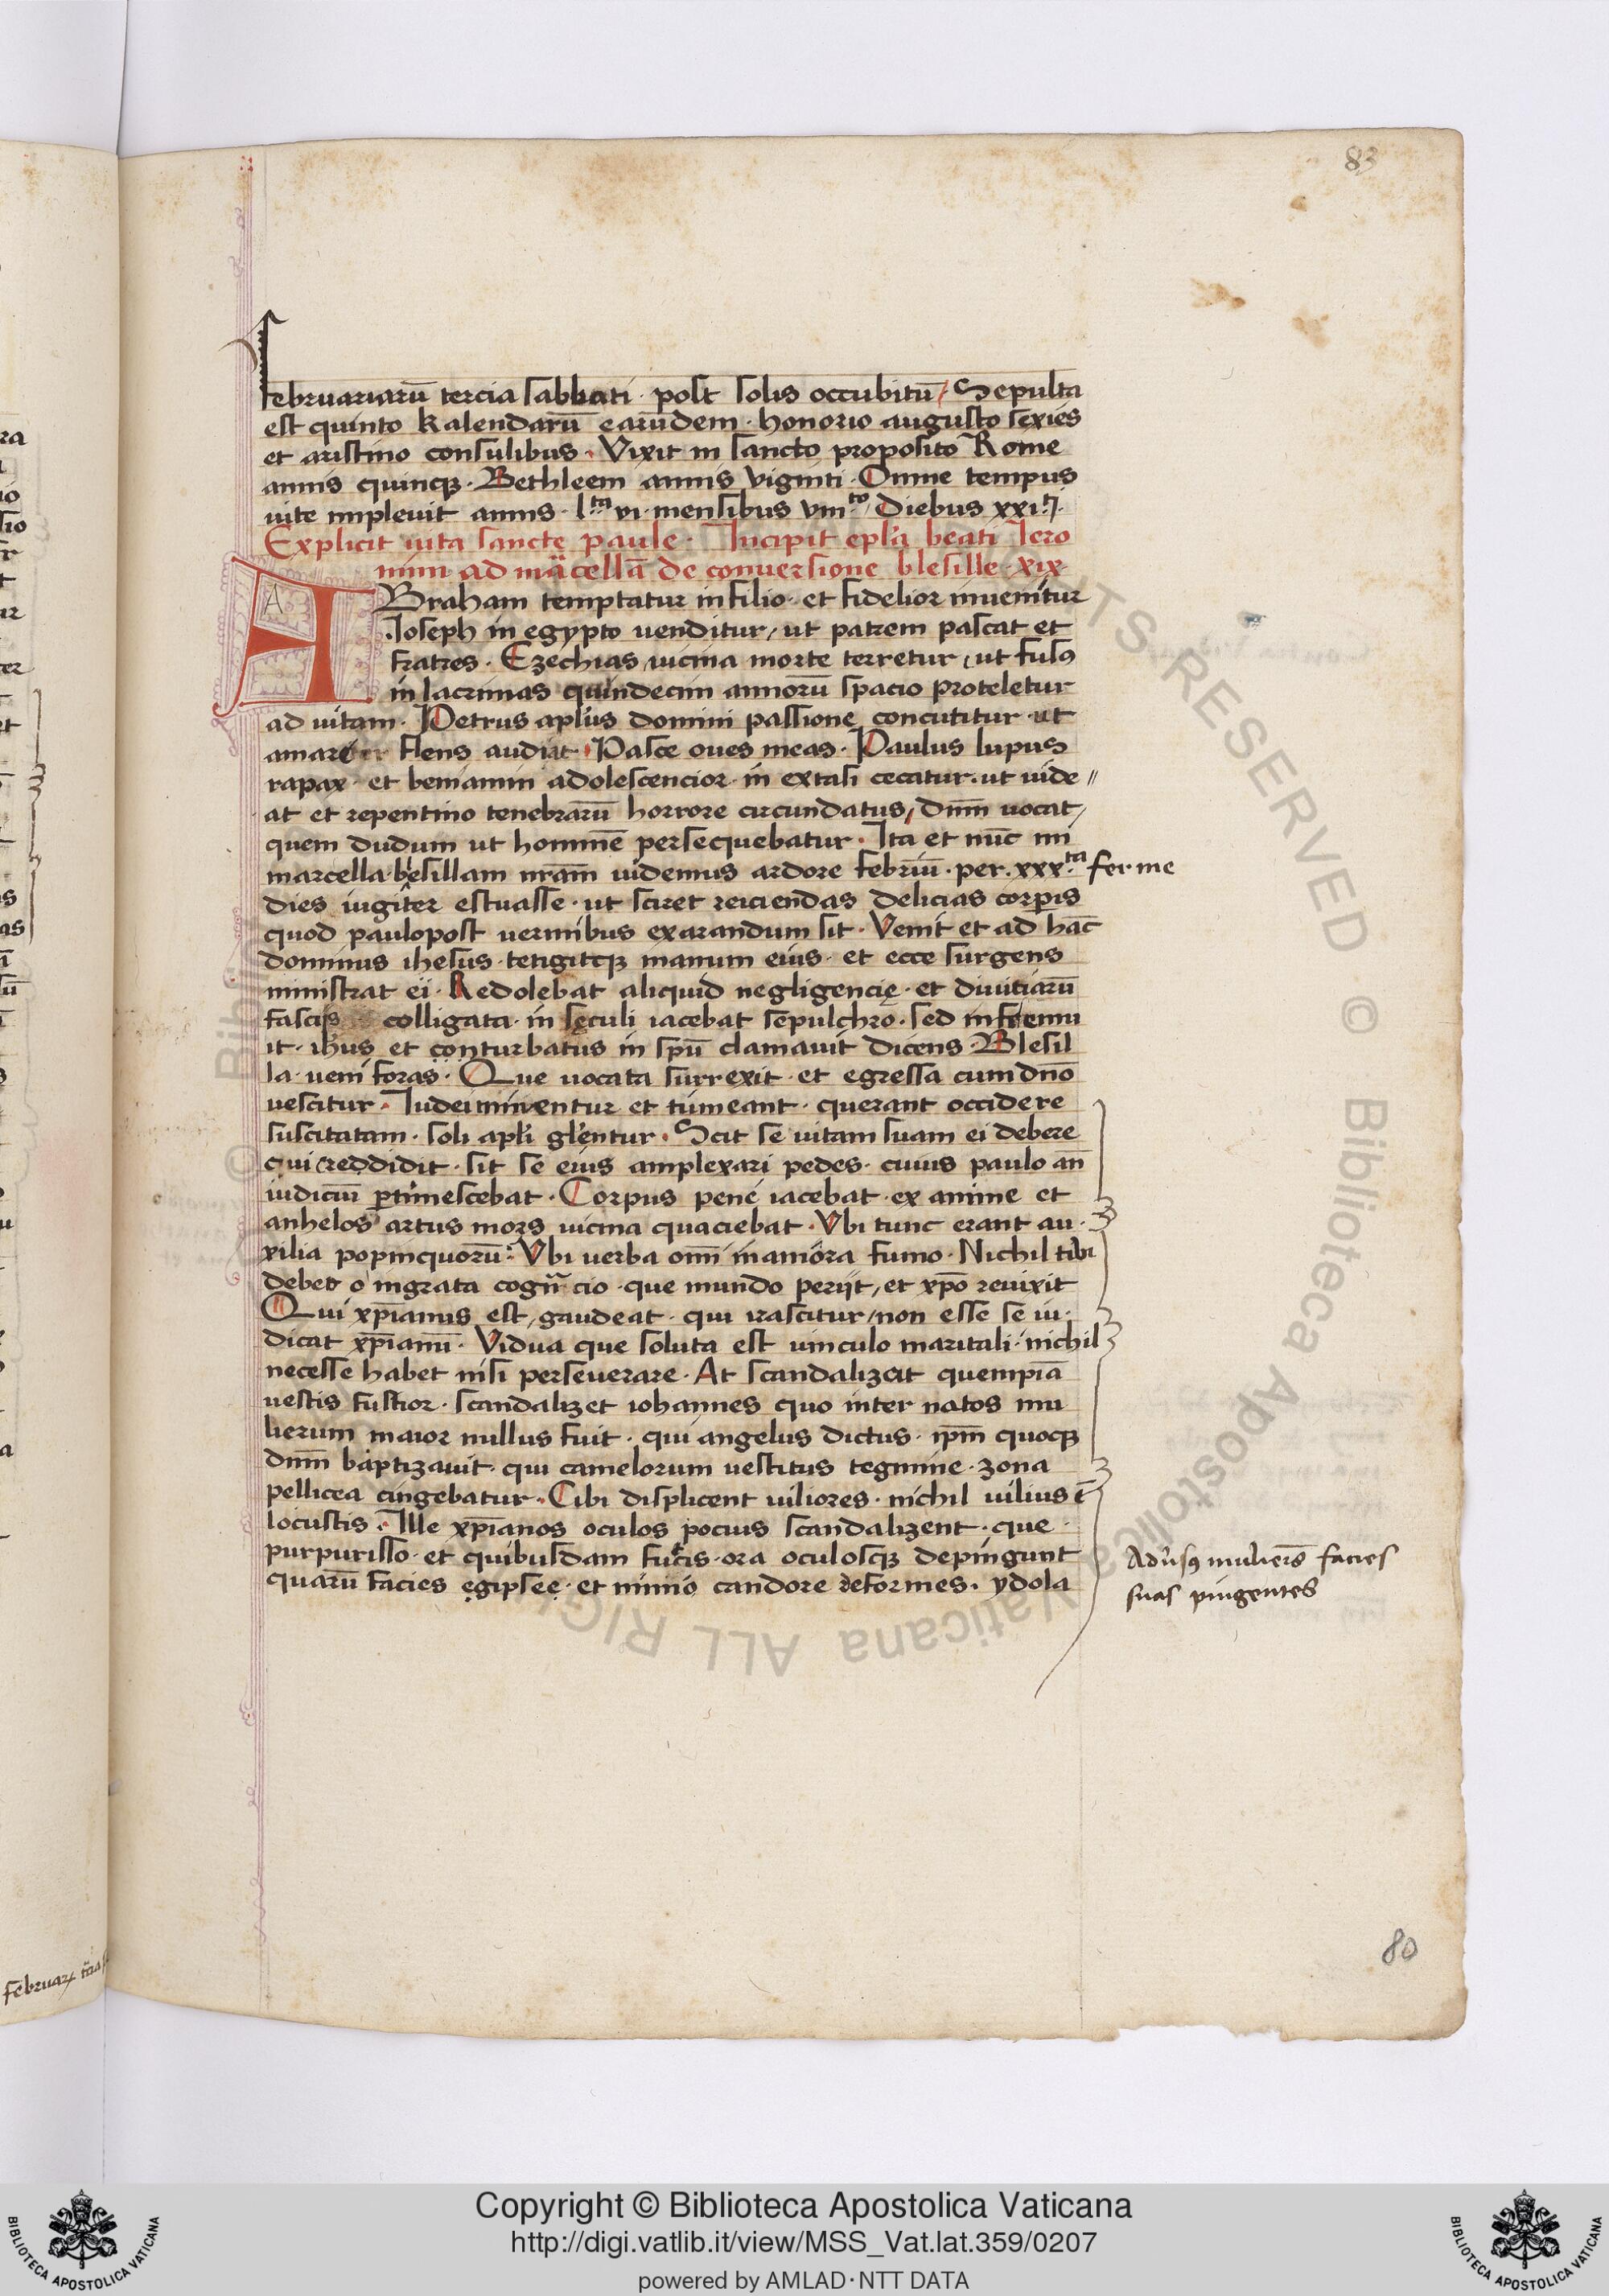 83
februariarū tercia sabbati · post solis occubitū / Sepulta
est quinto kalendarū earūdem · honorio augusto sexies
et aristino consulibus · Vixit in sancto proposito Rome
annis quinqȝ · Bethleem annis viginti · Omne tempus
uite implevit annis · lᵗᵃ vi · mensibus viiiᵗᵒ / diebus xxi ·
Explicit uita sancte paule · Incipit epl'a beati Jero
nimi ad marcellā de conversione blesille · xix
ABraham temptatur in filio · et fidelior invenitur
Joseph in egypto venditur / ut patrem pascat et
fratres · Ezechias vicina morte terretur / ut fusꝰ
in lacrimas quindecim annorū spacio proteletur
ad vitam · Petrus apl'us domini passione concutitur · ut
amare flens audiat · Pasce oves meas · Paulus lupus
rapax · et beniamin adolescencior · in extasi cecatur · ut vide //
at et repentino tenebrarū horrore circundatus / dn̄m vocat /
quem dudum ut hominē persequebatur · Ita et nūc mi
marcella · blesillam nr̄am videmus ardore febriū · per · xxxᵗᵃ ferme
dies iugiter estuasse · ut sciret reiciendas delicias corꝑis
quod paulopost vermibus exarandum sit · Venit et ad hāc
dominus ihesus · tetigitqȝ manum eius · et ecce surgens
ministrat ei · Redolebat aliquid negligencię · et divitiarū
fascis colligata · in sęculi iacebat sepulchro · sed infremu
it · ih̄us et conturbatus in spū clamavit dicens · Blesil
la · veni foras · Que vocata surrexit · et egressa cum dn̄o
vescitur · Iudei minentur et tumeant · querant occidere
suscitatam · soli apl'i gl'entur · Scit se vitam suam ei debere
qui reddidit · sit se eius amplexari pedes · cuius paulo an̄
iudiciū ꝑtimescebat · Corpus pene iacebat · ex anime et
anhelos artus mors vicina quaciebat · Vbi tunc erant au ·
xilia popinquorū · Vbi verba om̄i inaniora fumo · Nichil tibi
debet o ingrata cogn̄cio · que mundo periit / et xp̄o revixit
Qui xp̄ianus est / gaudeat · qui irascitur / non esse se iu ·
dicat xp̄ianū · Vidua que soluta est vinculo maritali · nichil
necesse habet nisi perseverare · At scandalizat quempiā
vestis fustior · scandalizet iohannes quo inter natos mu
lierum maior nullus fuit · qui angelus dictus · ip̄m quoqȝ
dn̄m baptizavit · qui camelorum vestitus tegmine · zona
pellicea cingebatur · Cibi displicent viliores · nichil vilius ē
locustis · Ille xp̄ianos oculos pocius scandalizent · que
purpurisso · et quibusdam fucis · ora oculosqȝ depingunt
quarū facies egipsee · et nimio candore deformes · ydola
Adu'sꝰ mulierēs facies
suas pingentes
80
februarꝝ
Copyright © Biblioteca Apostolica Vaticana
http://digi.vatlib.it/view/MSS_Vat.lat.359/0207
powered by AMLAD·NTT DATA
BIBLIOTECA APOSTOLICA VATICANA
BIBLIOTECA APOSTOLICA VATICANA
© Biblioteca Apostolica Vaticana ALL RIGHTS RESERVED